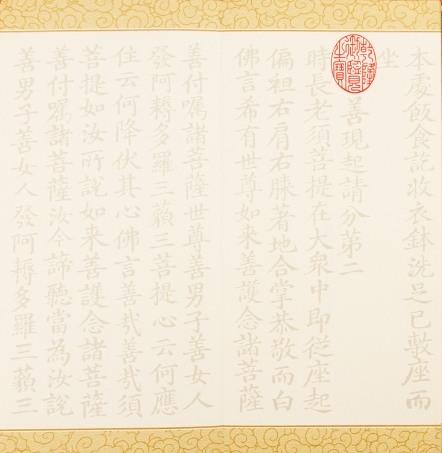 本處飯食訖收衣鉢洗足已敷座而
坐
善現起請分第二
乾隆御覽之寶
時長老須菩提在大衆中即從座起
偏袒右肩右膝著地合掌恭敬而白
佛言希有世尊如来善護念諸菩薩
善付囑諸菩薩世尊善男子善女人
發阿耨多羅三藐三菩提心云何應
住云何降伏其心佛言善哉善哉須
菩提如汝所說如来善護念諸菩薩
善付囑諸菩薩汝今諦聽當為汝說
善男子善女人發阿耨多羅三藐三